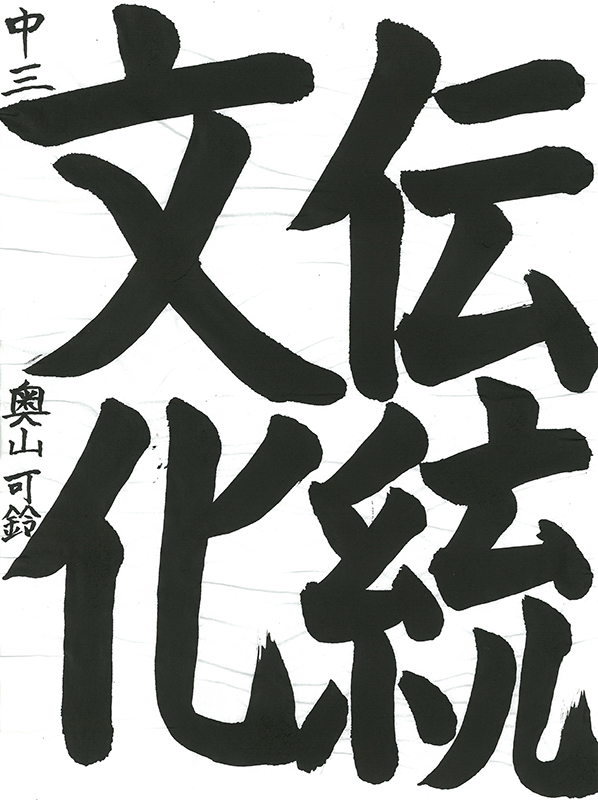 伝統
文化
中三
奥山可鈴